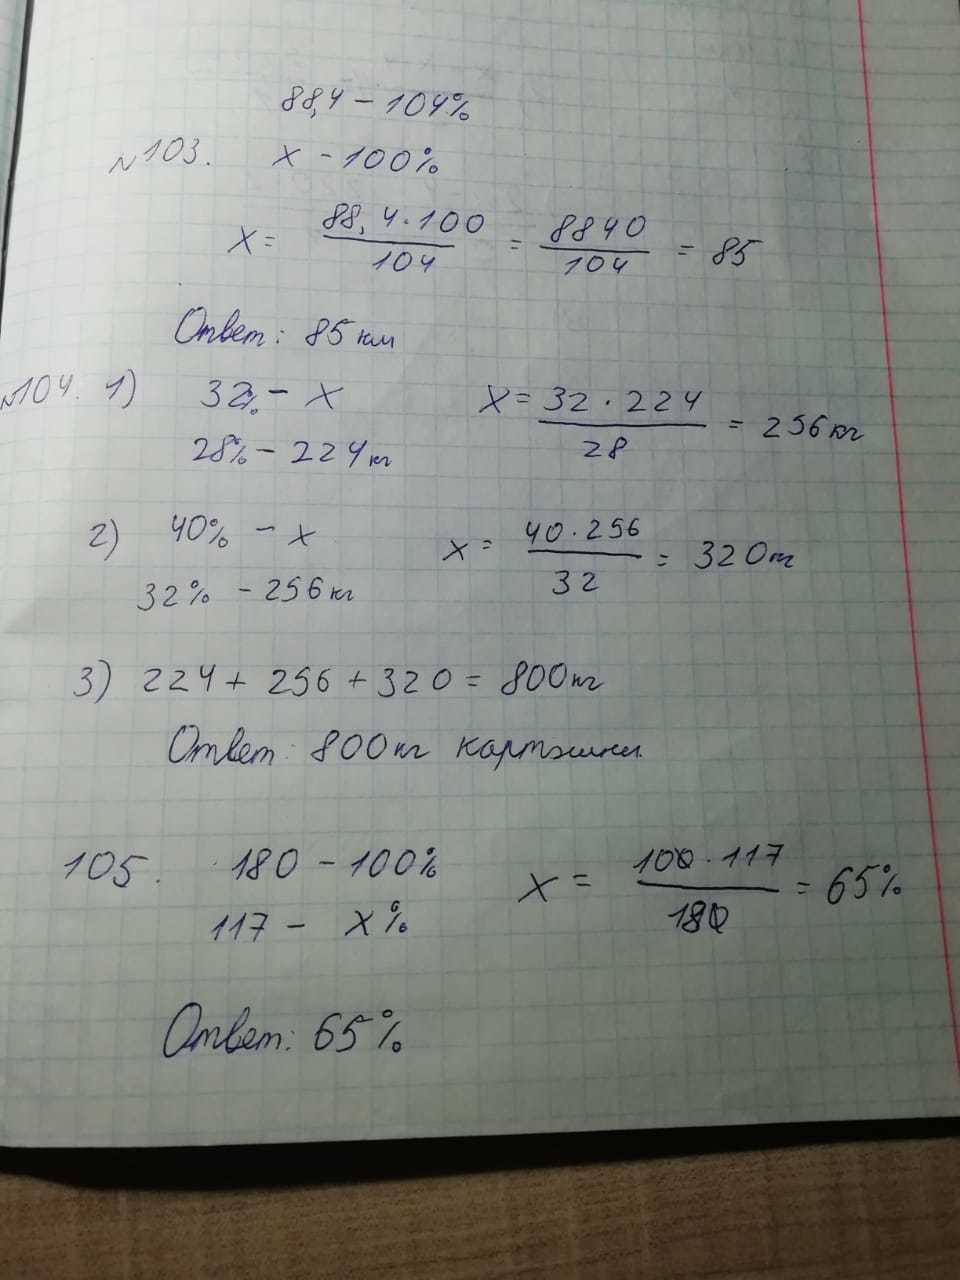 88,4 - 104%
№103. x - 100%
x = 88,4·100 / 104 = 8840 / 104 = 85
Ответ: 85 км
№104. 1) 32% - x x = 32·224 / 28 = 256 кг
28% - 224 кг
2) 40% - x x = 40·256 / 32 = 320 кг
32% - 256 кг
3) 224 + 256 + 320 = 800 кг
Ответ: 800 кг картошки.
105. 180 - 100% x = 100·117 / 180 = 65%
117 - x%
Ответ: 65%